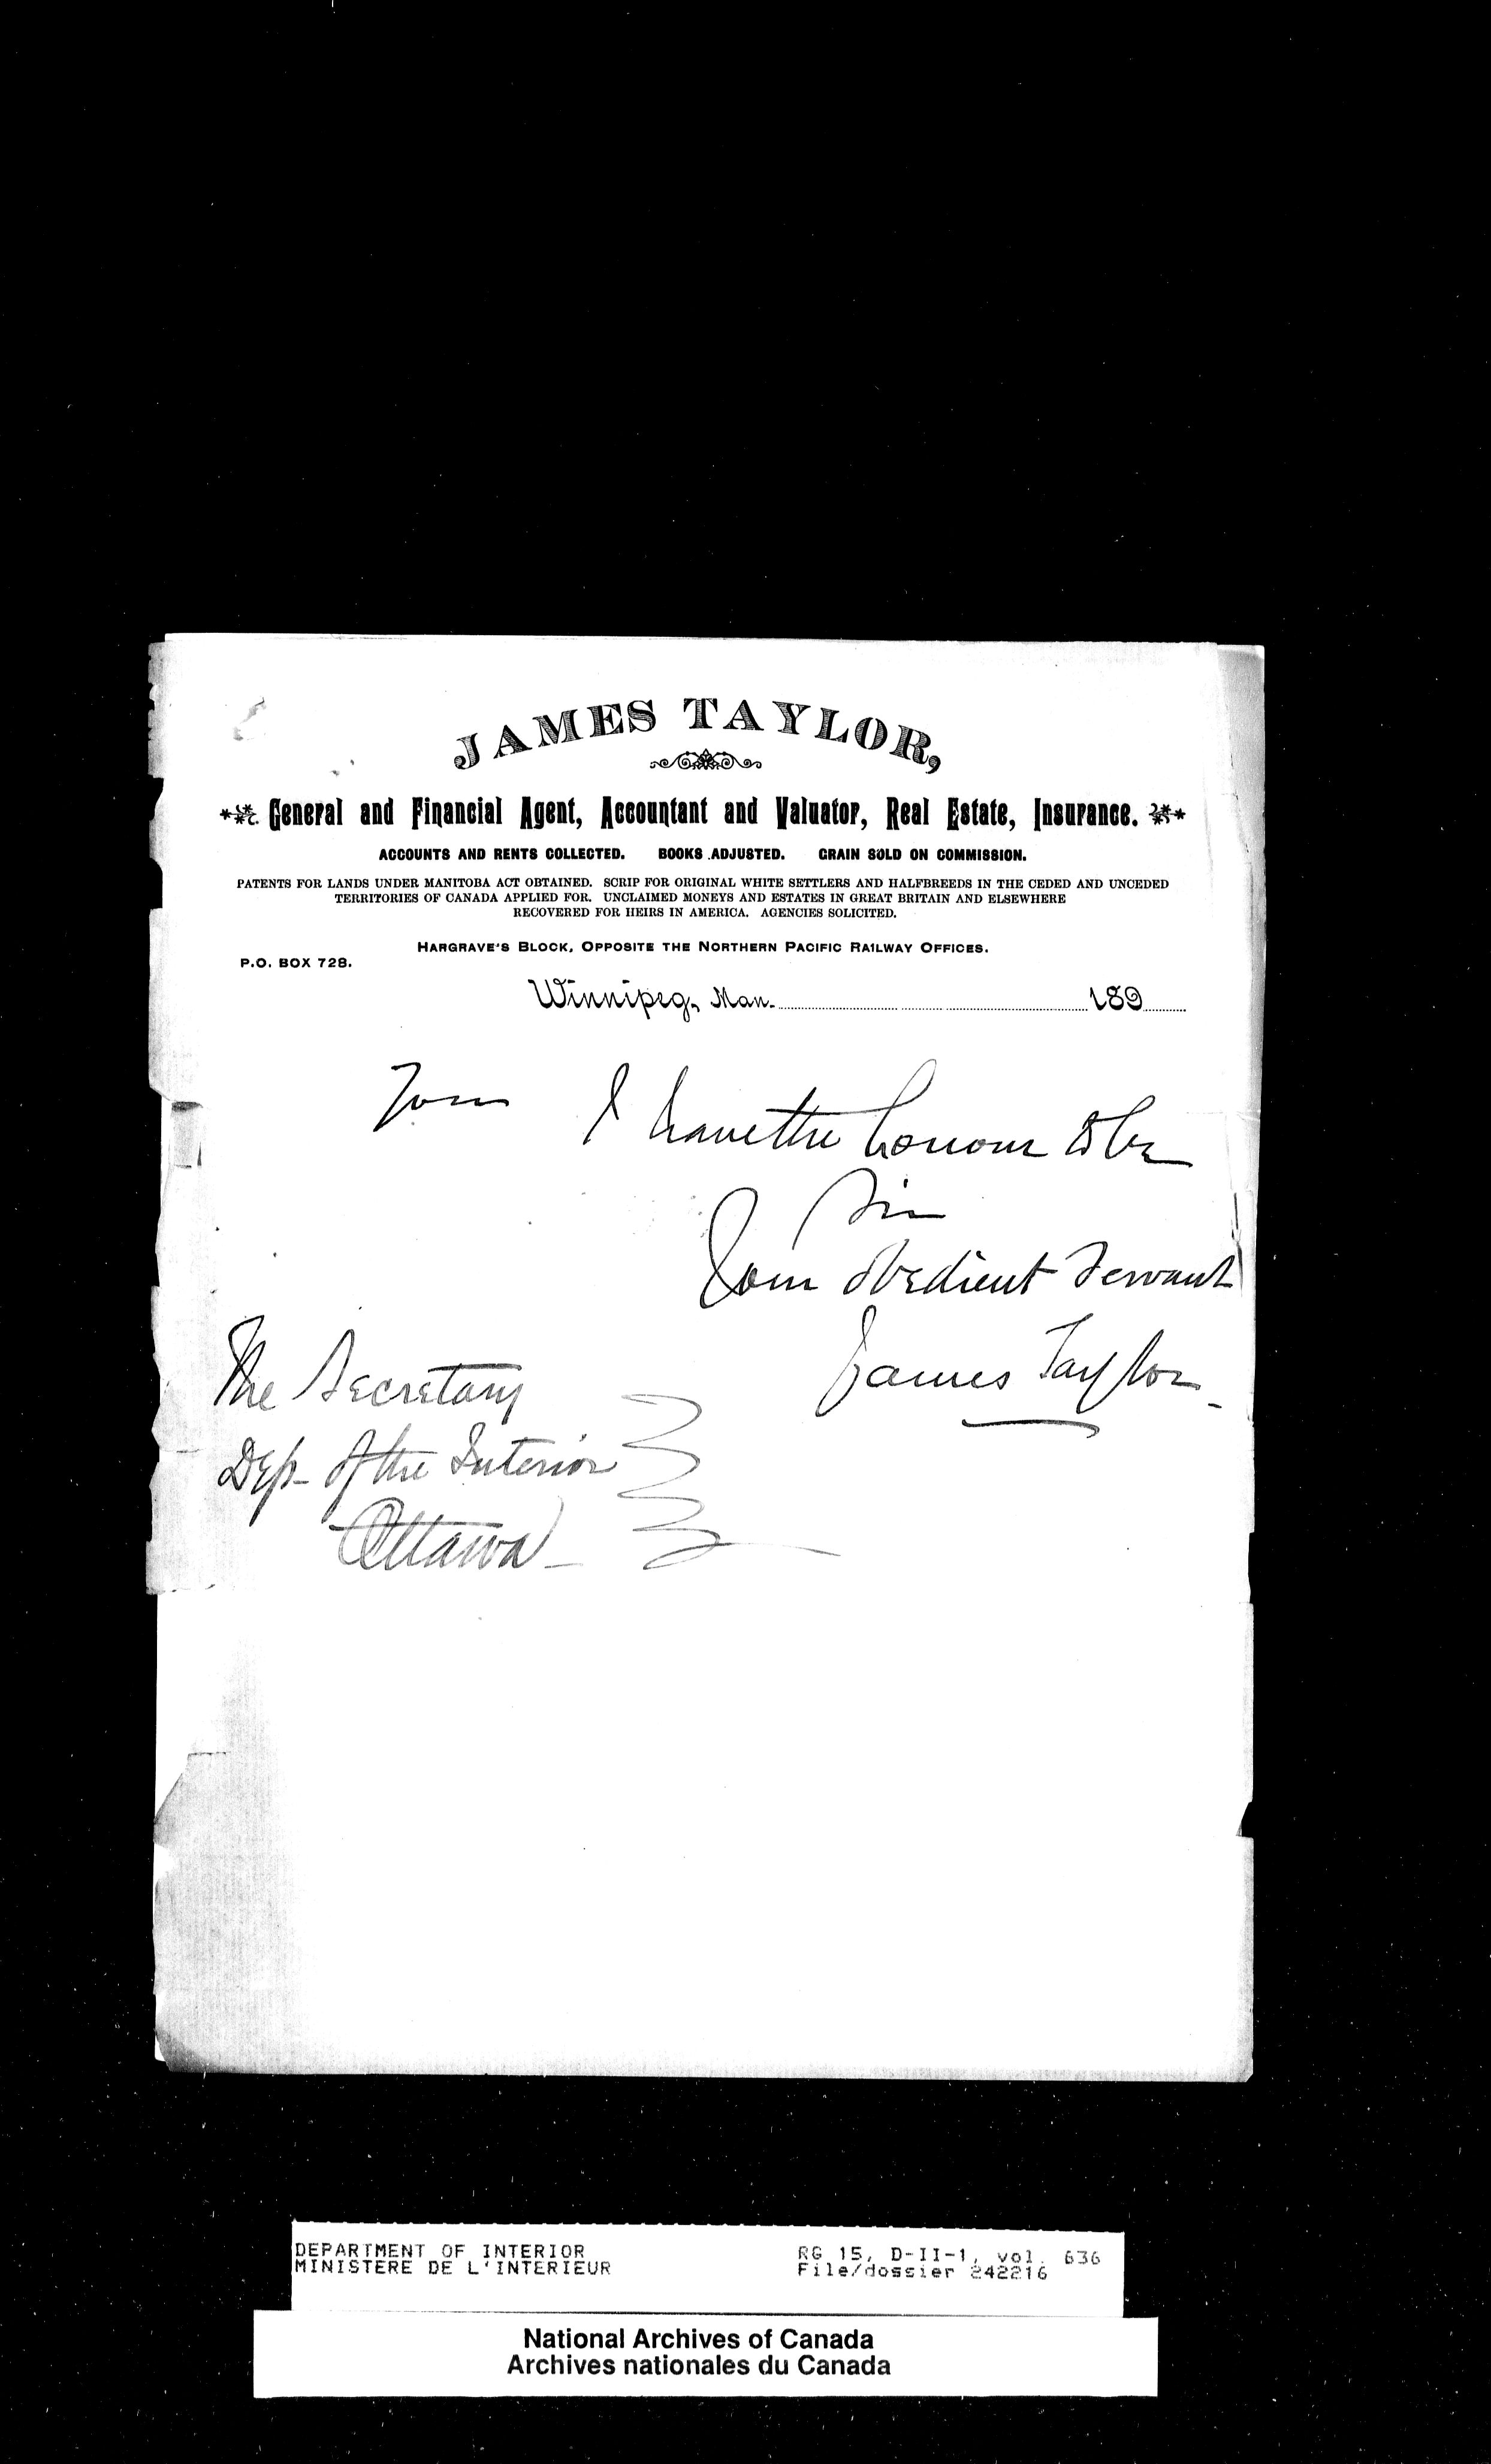 JAMES TAYLOR,
General and Financial Agent, Accountant and Valuator, Real Estate, Insurance.
ACCOUNTS AND RENTS COLLECTED. BOOKS ADJUSTED. GRAIN SOLD ON COMMISSION.
PATENTS FOR LANDS UNDER MANITOBA ACT OBTAINED. SCRIP FOR ORIGINAL WHITE SETTLERS AND HALFBREEDS IN THE CEDED AND UNCEDED
TERRITORIES OF CANADA APPLIED FOR. UNCLAIMED MONEYS AND ESTATES IN GREAT BRITAIN AND ELSEWHERE
RECOVERED FOR HEIRS IN AMERICA. AGENCIES SOLICITED.
HARGRAVE'S BLOCK, OPPOSITE THE NORTHERN PACIFIC RAILWAY OFFICES.
P.O. BOX 728.
Winnipeg, Man. 189
I have the honour to be
Sir
Your obedient Servant
James Taylor
The Secretary
Dep. of the Interior
Ottawa
DEPARTMENT OF INTERIOR
MINISTERE DE L'INTERIEUR
RG 15, D-II-1, vol. 636
File/dossier 242216
National Archives of Canada
Archives nationales du Canada